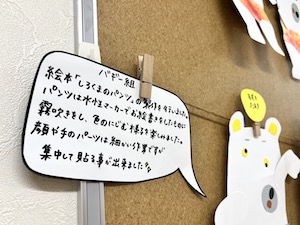 バギー組
絵本「しろくまのパンツ」の製作を行いました。
パンツは水性マーカーでお絵書きをしたものに
霧吹きをし、色のにじむ様子を楽しみました。
顔や手のパーツは細かい作業ですが
集中して貼る事が出来ました